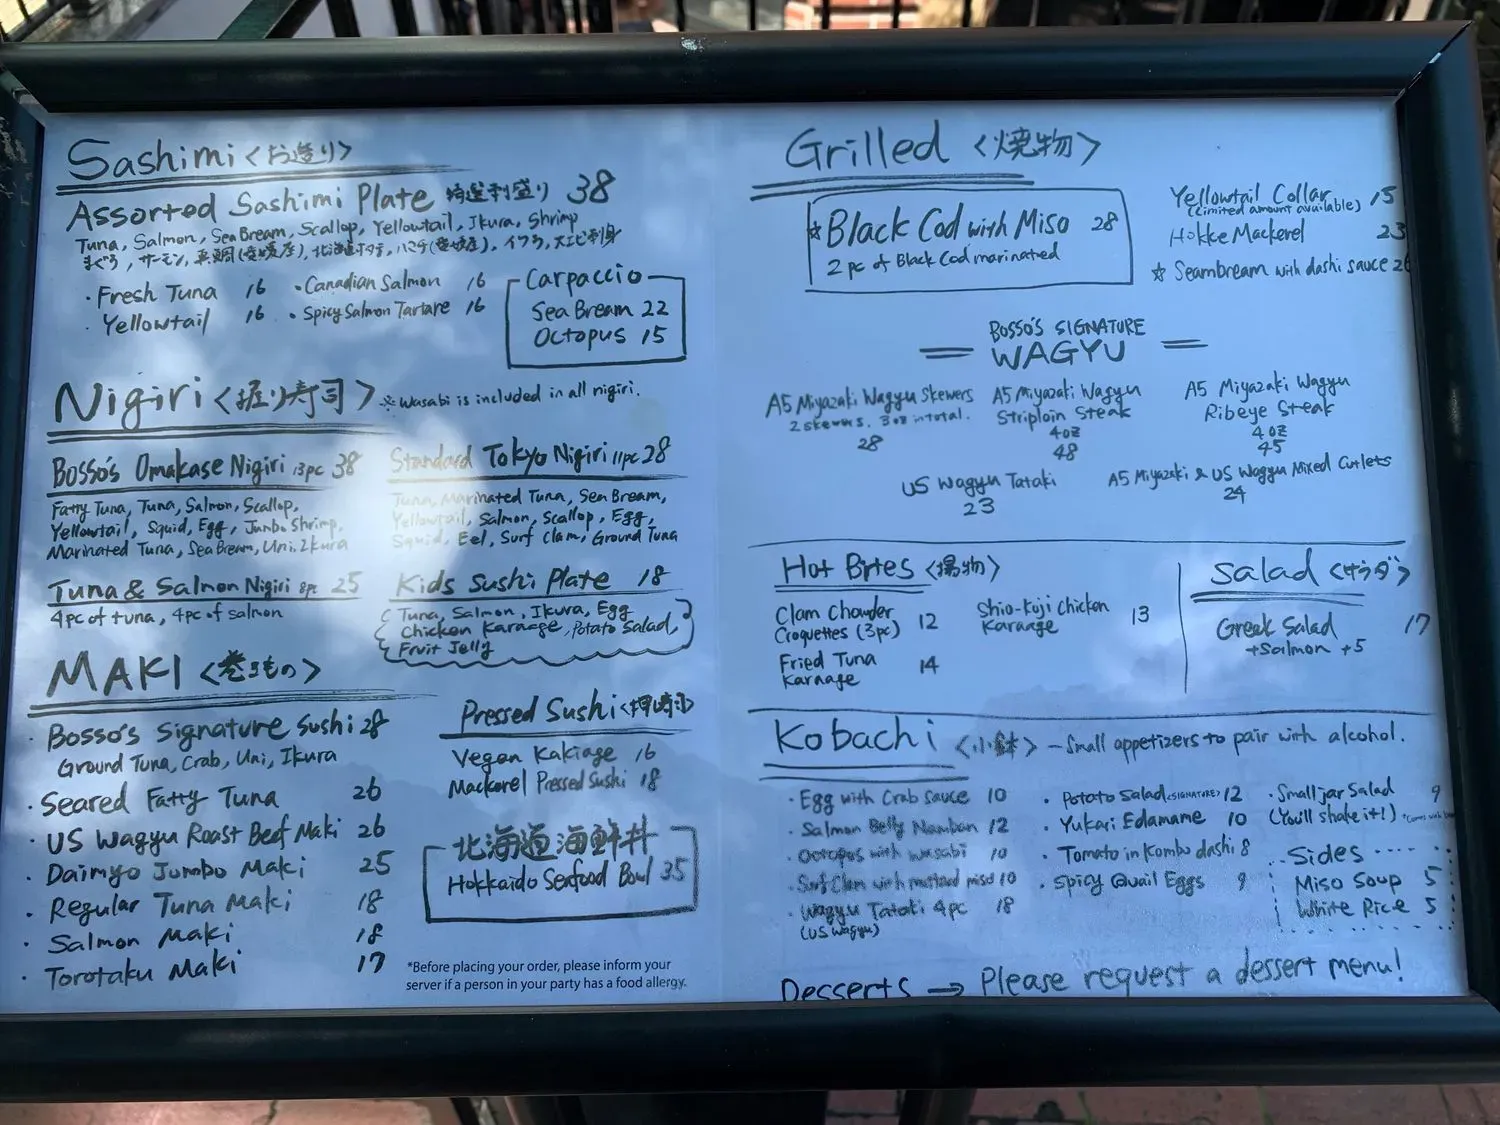 Sashimi <お造り>
Assorted Sashimi Plate 特選刺盛り 38
Tuna, Salmon, Sea Bream, Scallop, Yellowtail, Ikura, Shrimp
まぐろ, サーモン, 真鯛(愛媛産), 北海道ホタテ, ハマチ(愛媛産), イクラ, 大エビ刺身
・Fresh Tuna 16
・Canadian Salmon 16
・Yellowtail 16
・Spicy Salmon Tartare 16
Carpaccio
Sea Bream 22
Octopus 15
Nigiri <握り寿司> ※Wasabi is included in all nigiri.
Bosso's Omakase Nigiri 13pc 38
Fatty Tuna, Tuna, Salmon, Scallop,
Yellowtail, Squid, Egg, Jumbo Shrimp,
Marinated Tuna, Sea Bream, Uni, Ikura
Standard Tokyo Nigiri 11pc 28
Tuna, Marinated Tuna, Sea Bream,
Yellowtail, Salmon, Scallop, Egg,
Squid, Eel, Surf Clam, Ground Tuna
Tuna & Salmon Nigiri 8pc 25
4pc of tuna, 4pc of salmon
Kids Sushi Plate 18
Tuna, Salmon, Ikura, Egg
Chicken Karaage, Potato Salad,
Fruit Jelly
MAKI <巻きもの>
・Bosso's Signature Sushi 28
Ground Tuna, Crab, Uni, Ikura
・Seared Fatty Tuna 26
・US Wagyu Roast Beef Maki 26
・Daimyo Jumbo Maki 25
・Regular Tuna Maki 18
・Salmon Maki 18
・Torotaku Maki 17
Pressed Sushi <押寿司>
Vegan Kakiage 16
Mackerel Pressed Sushi 18
北海道海鮮丼
Hokkaido Seafood Bowl 35
*Before placing your order, please inform your
server if a person in your party has a food allergy.
Grilled <焼物>
☆Black Cod with Miso 28
2 pc of Black Cod marinated
Yellowtail Collar 15
(Limited amount available)
Hokke Mackerel 23
☆ Seambream with dashi sauce 26
BOSSO'S SIGNATURE
WAGYU
A5 Miyazaki Wagyu Skewers
2 skewers. 3oz in total.
28
A5 Miyazaki Wagyu
Striploin Steak
4oz
48
A5 Miyazaki Wagyu
Ribeye Steak
4oz
45
US Wagyu Tataki
23
A5 Miyazaki & US Wagyu Mixed Cutlets
24
Hot Bites <揚物>
Clam Chowder
Croquettes (3pc) 12
Fried Tuna
Karaage 14
Shio-Koji Chicken
Karaage 13
Salad <サラダ>
Greek Salad 17
+Salmon +5
Kobachi <小鉢> - Small appetizers to pair with alcohol.
・Egg with Crab Sauce 10
・Salmon Belly Nanban 12
・Octopus with Wasabi 10
・Surf Clam with mustard miso 10
・Wagyu Tataki 4pc 18
(US Wagyu)
・Potato Salad <SIGNATURE> 12
・Yukari Edamame 10
・Tomato in Kombu dashi 8
・Spicy Quail Eggs 9
・Small jar Salad 9
(You'll shake it!)
Sides
Miso Soup 5
White Rice 5
Desserts → Please request a dessert menu!